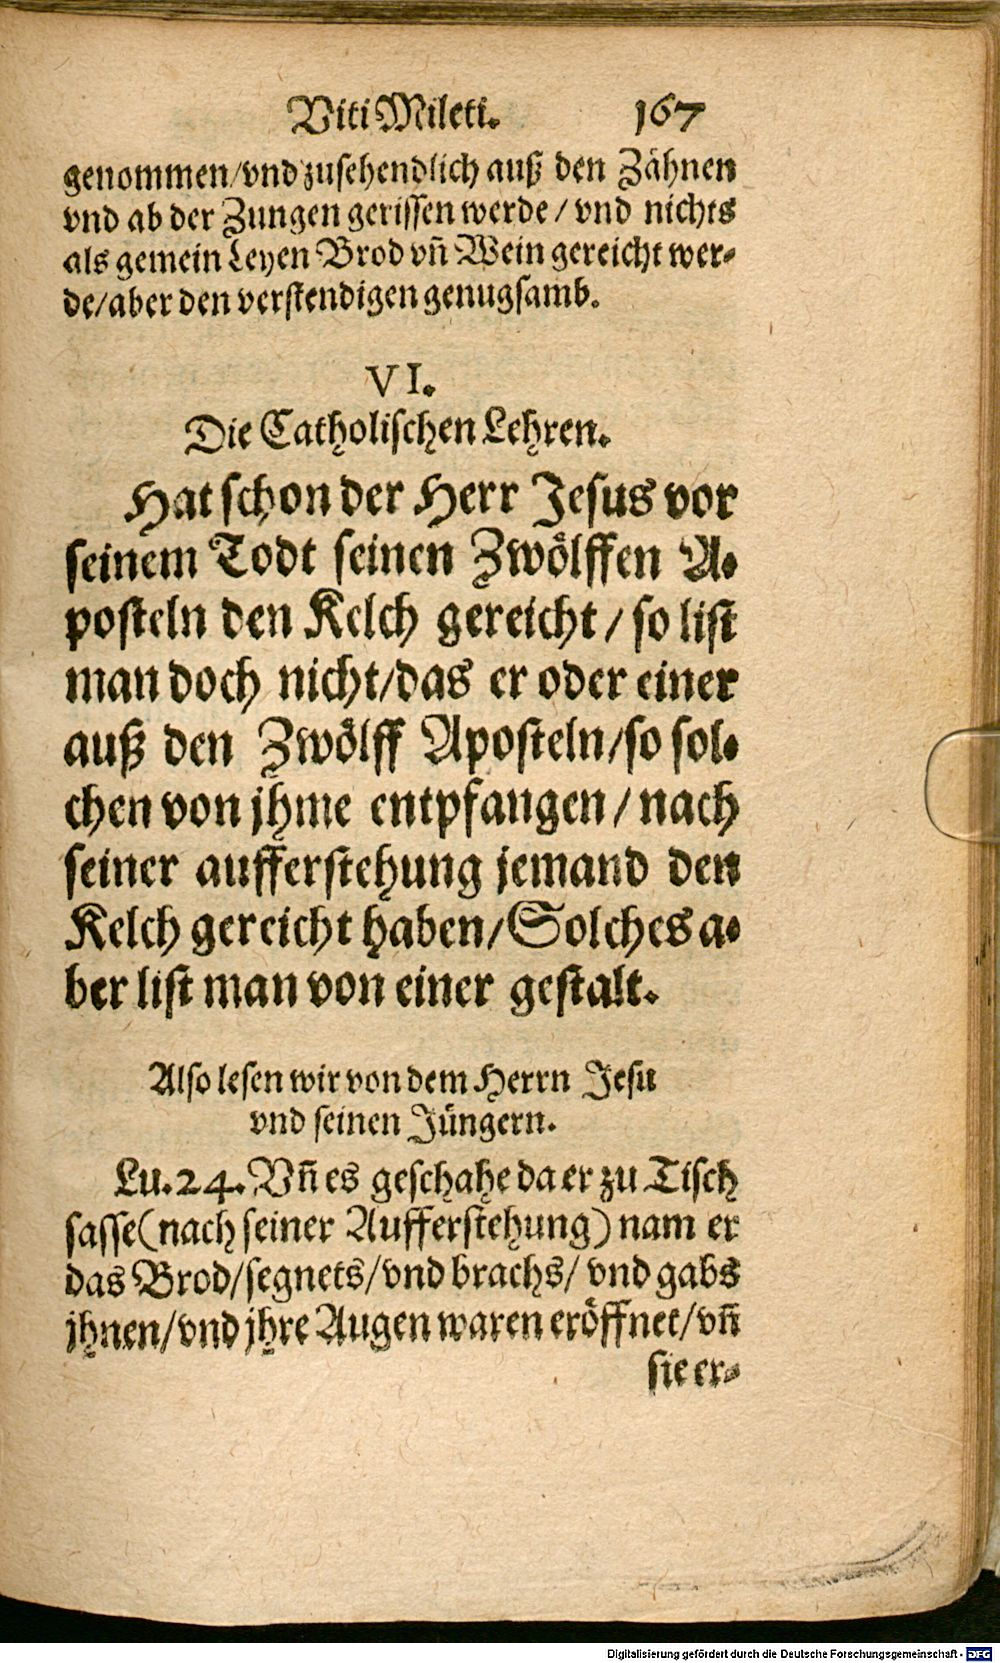 Viti Mileti. 167
genommen/vnd zusehendlich auß den Zähnen
vnd ab der Zungen gerissen werde/ vnd nichts
als gemein Leyen Brod vn̄ Wein gereicht wer-
de/aber den verstendigen genugsamb.
VI.
Die Catholischen Lehren.
Hat schon der Herr Jesus vor
seinem Todt seinen Zwölffen A-
posteln den Kelch gereicht/ so list
man doch nicht/das er oder einer
auß den Zwölff Aposteln/so sol-
chen von jhme entpfangen/ nach
seiner aufferstehung jemand den
Kelch gereicht haben/Solches a-
ber list man von einer gestalt.
Also lesen wir von dem Herrn Jesu
vnd seinen Jüngern.
Lu.24. Vn̄ es geschahe da er zu Tisch
sasse(nach seiner Aufferstehung) nam er
das Brod/segnets/vnd brachs/ vnd gabs
jhnen/vnd jhre Augen waren eröffnet/vn̄
sie er-
Digitalisierung gefördert durch die Deutsche Forschungsgemeinschaft - DFG